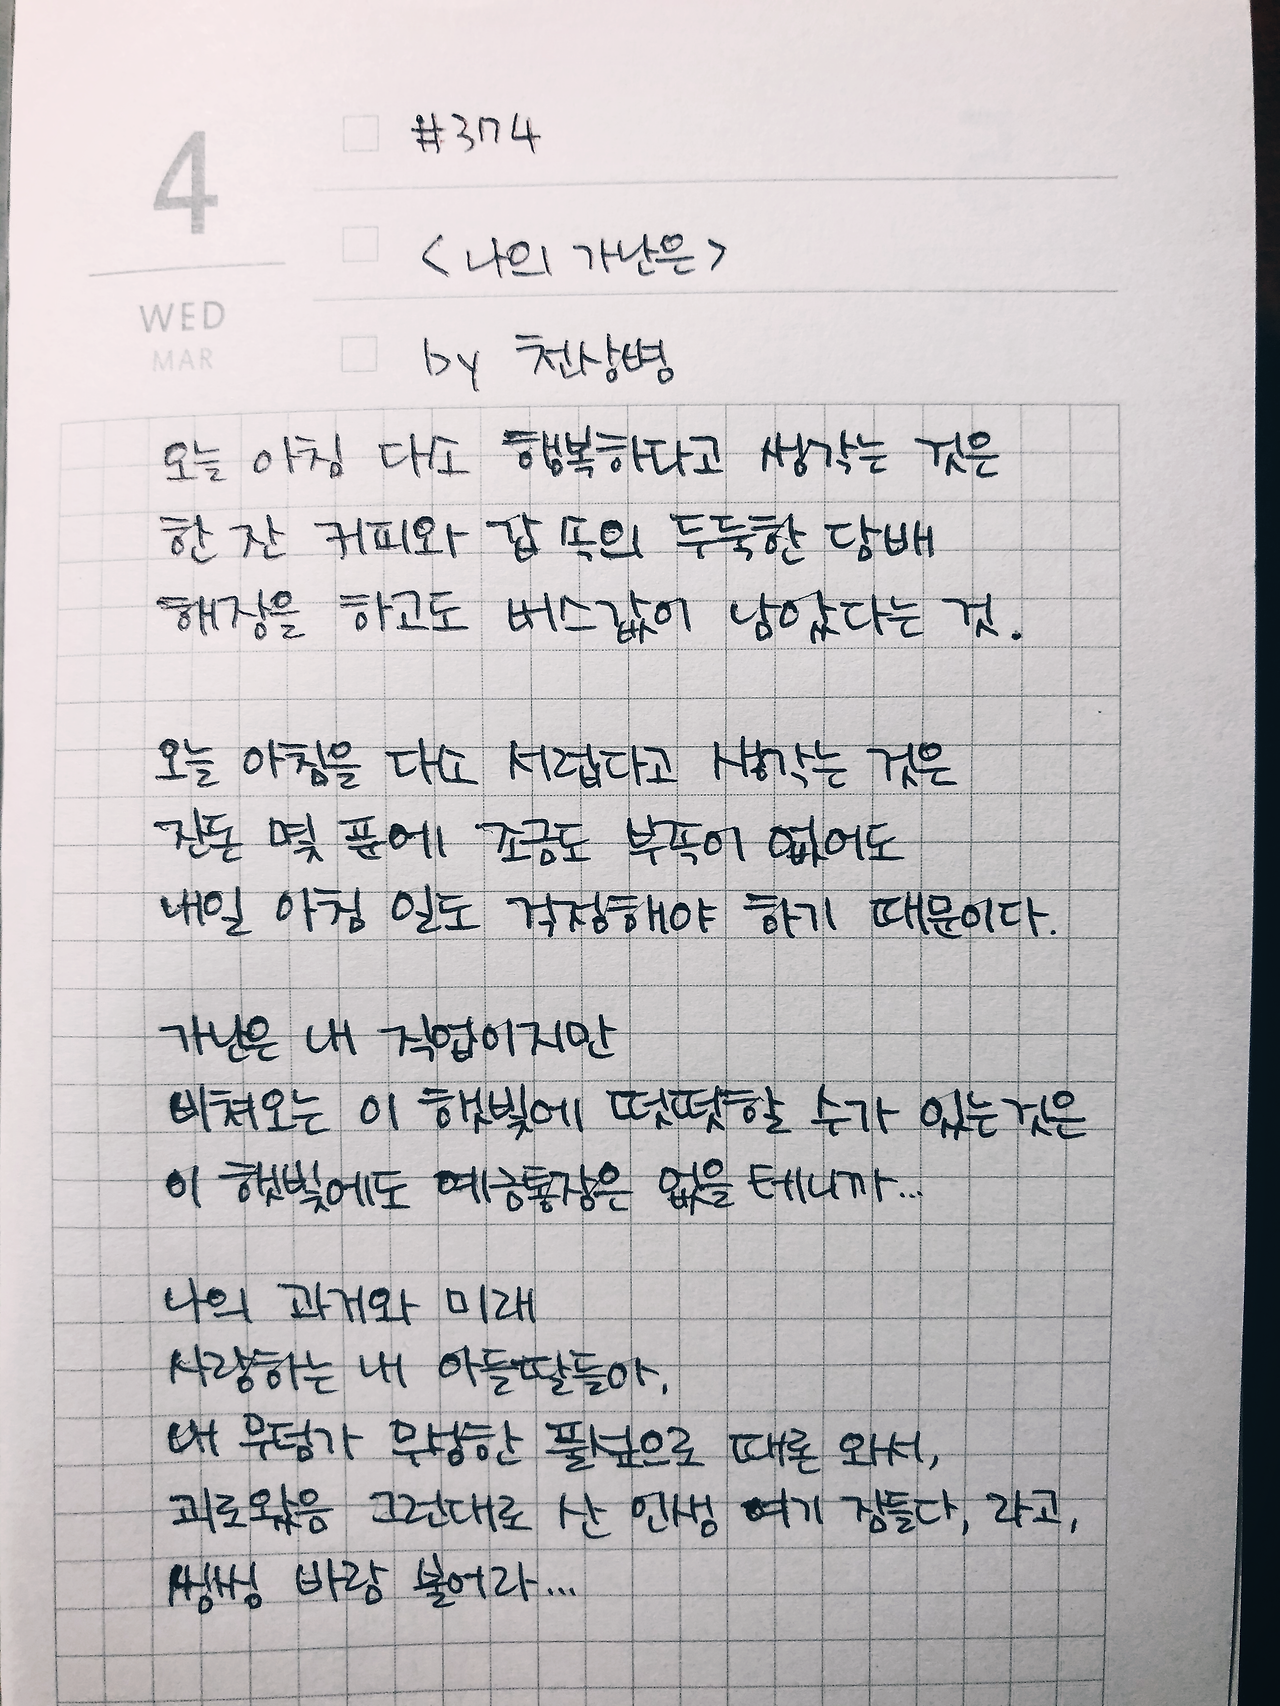 4
WED
MAR
#374
<나의 가난은>
by 천상병
오늘 아침 다소 행복하다고 생각는 것은
한 잔 커피와 갑 속의 두둑한 담배
해장을 하고도 버스값이 남았다는 것.
오늘 아침을 다소 서럽다고 생각는 것은
잔돈 몇 푼에 조금도 부족이 없어도
내일 아침 일도 걱정해야 하기 때문이다.
가난은 내 직업이지만
비쳐오는 이 햇빛에 떳떳할 수가 있는 것은
이 햇빛에도 예금통장은 없을 테니까...
나의 과거와 미래
사랑하는 내 아들딸들아,
내 무덤가 무성한 풀섶으로 때론 와서,
괴로왔음 그런대로 산 인생 여기 잠들다, 라고,
씽씽 바람 불어라...